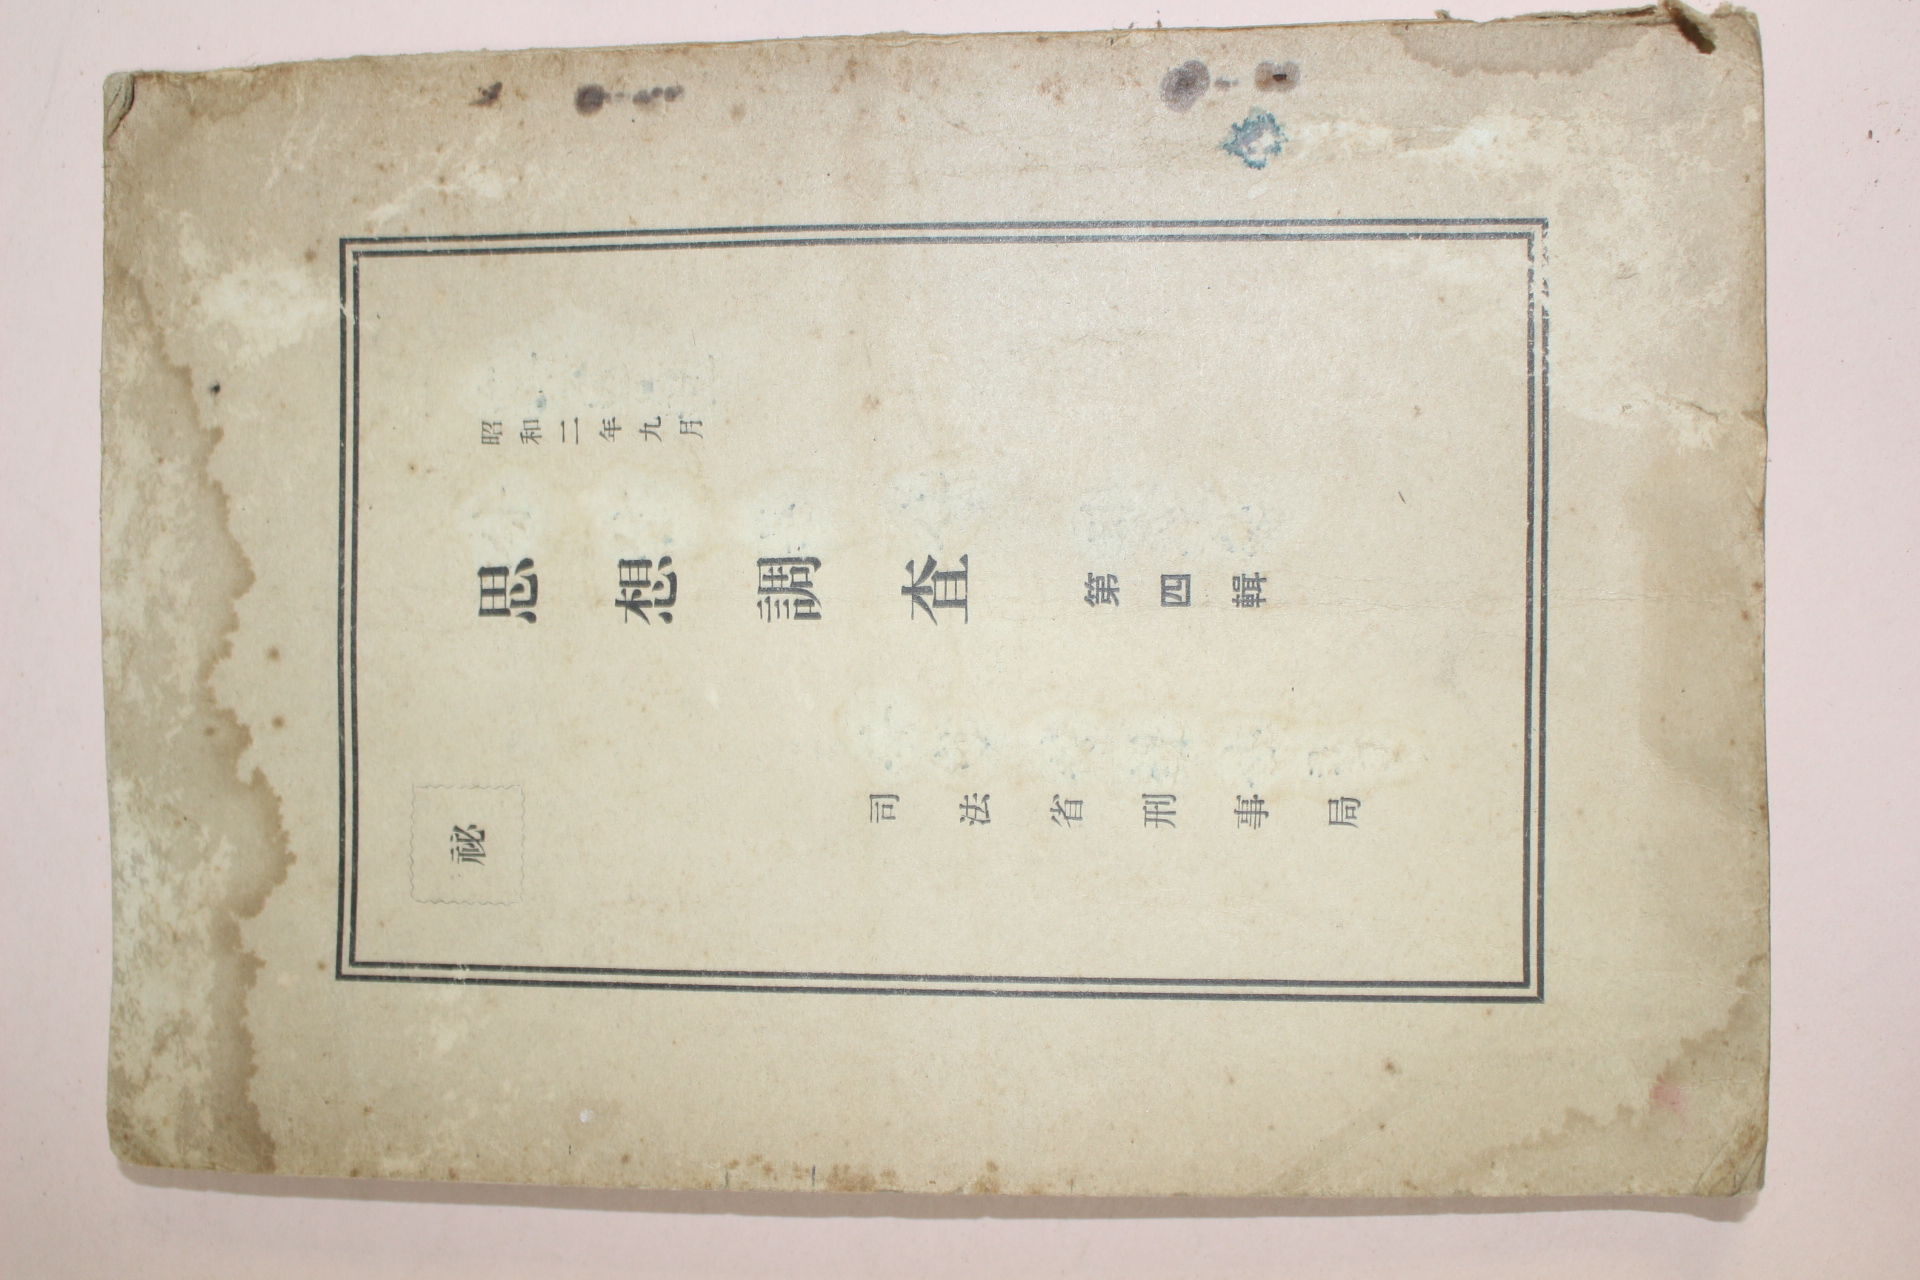 昭和二年九月
思想調査 第四輯
司法省刑事局
祕